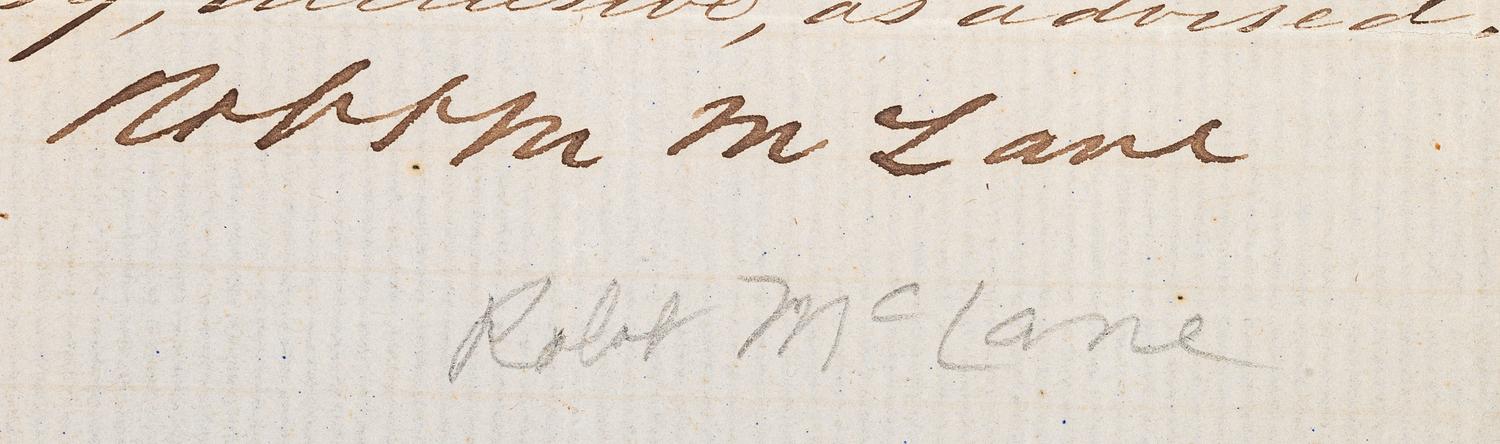 as advised.
Robt M McLane
Robt McLane